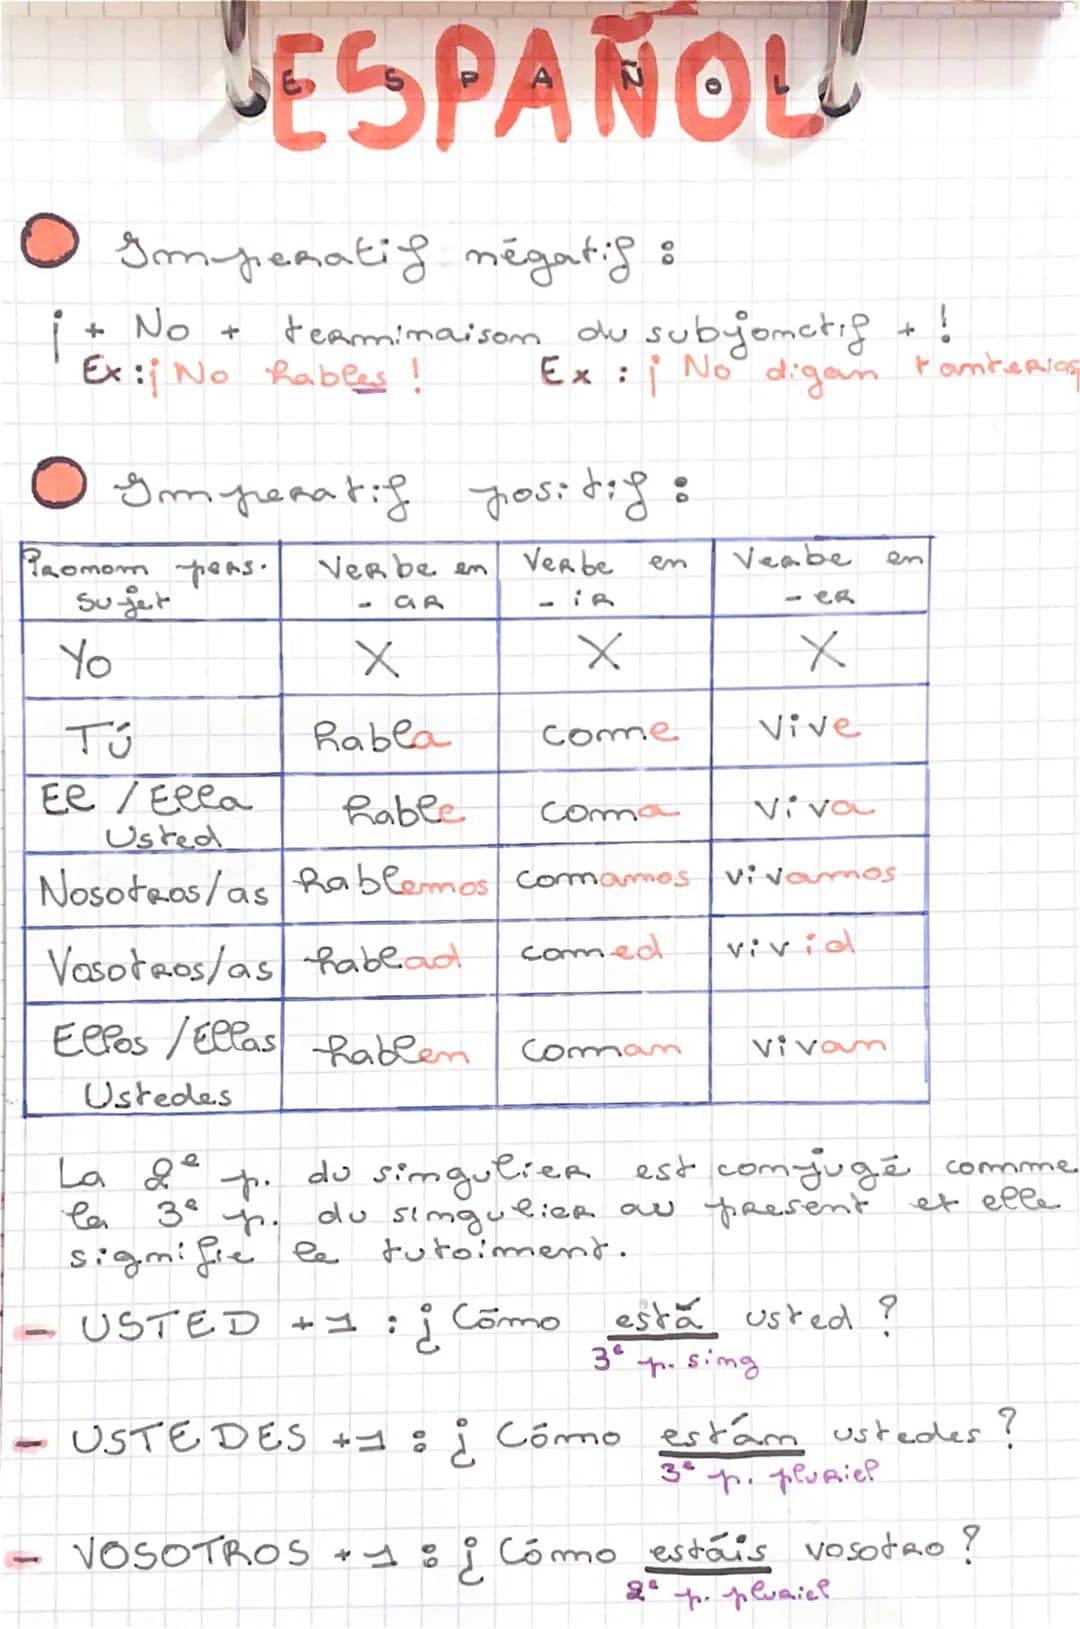 ESPAÑOL
E S P A Ñ O L
Imperatif négatif :
¡ + No + terminaison du subjonctif + !
Ex : ¡ No hables ! Ex : ¡ No digan tonterias
Imperatif positif :
Pronom pers. sujet Verbe en - ar Verbe en - ir Verbe en - er
Yo X X X
Tú habla come vive
El / Ella Usted hable coma viva
Nosotros/as hablemos comamos vivamos
Vosotros/as hablad comed vivid
Ellos / Ellas Ustedes hablen coman vivan
La 2e p. du singulier est conjugé comme
la 3e p. du singulier au present et elle
signifie le tutoiment.
- USTED +1 : ¿ Cómo está usted ?
3e p. sing
- USTEDES +1 : ¿ Cómo están ustedes ?
3e p. pluriel
- VOSOTROS +1 : ¿ Cómo estáis vosotro ?
2e p. pluriel